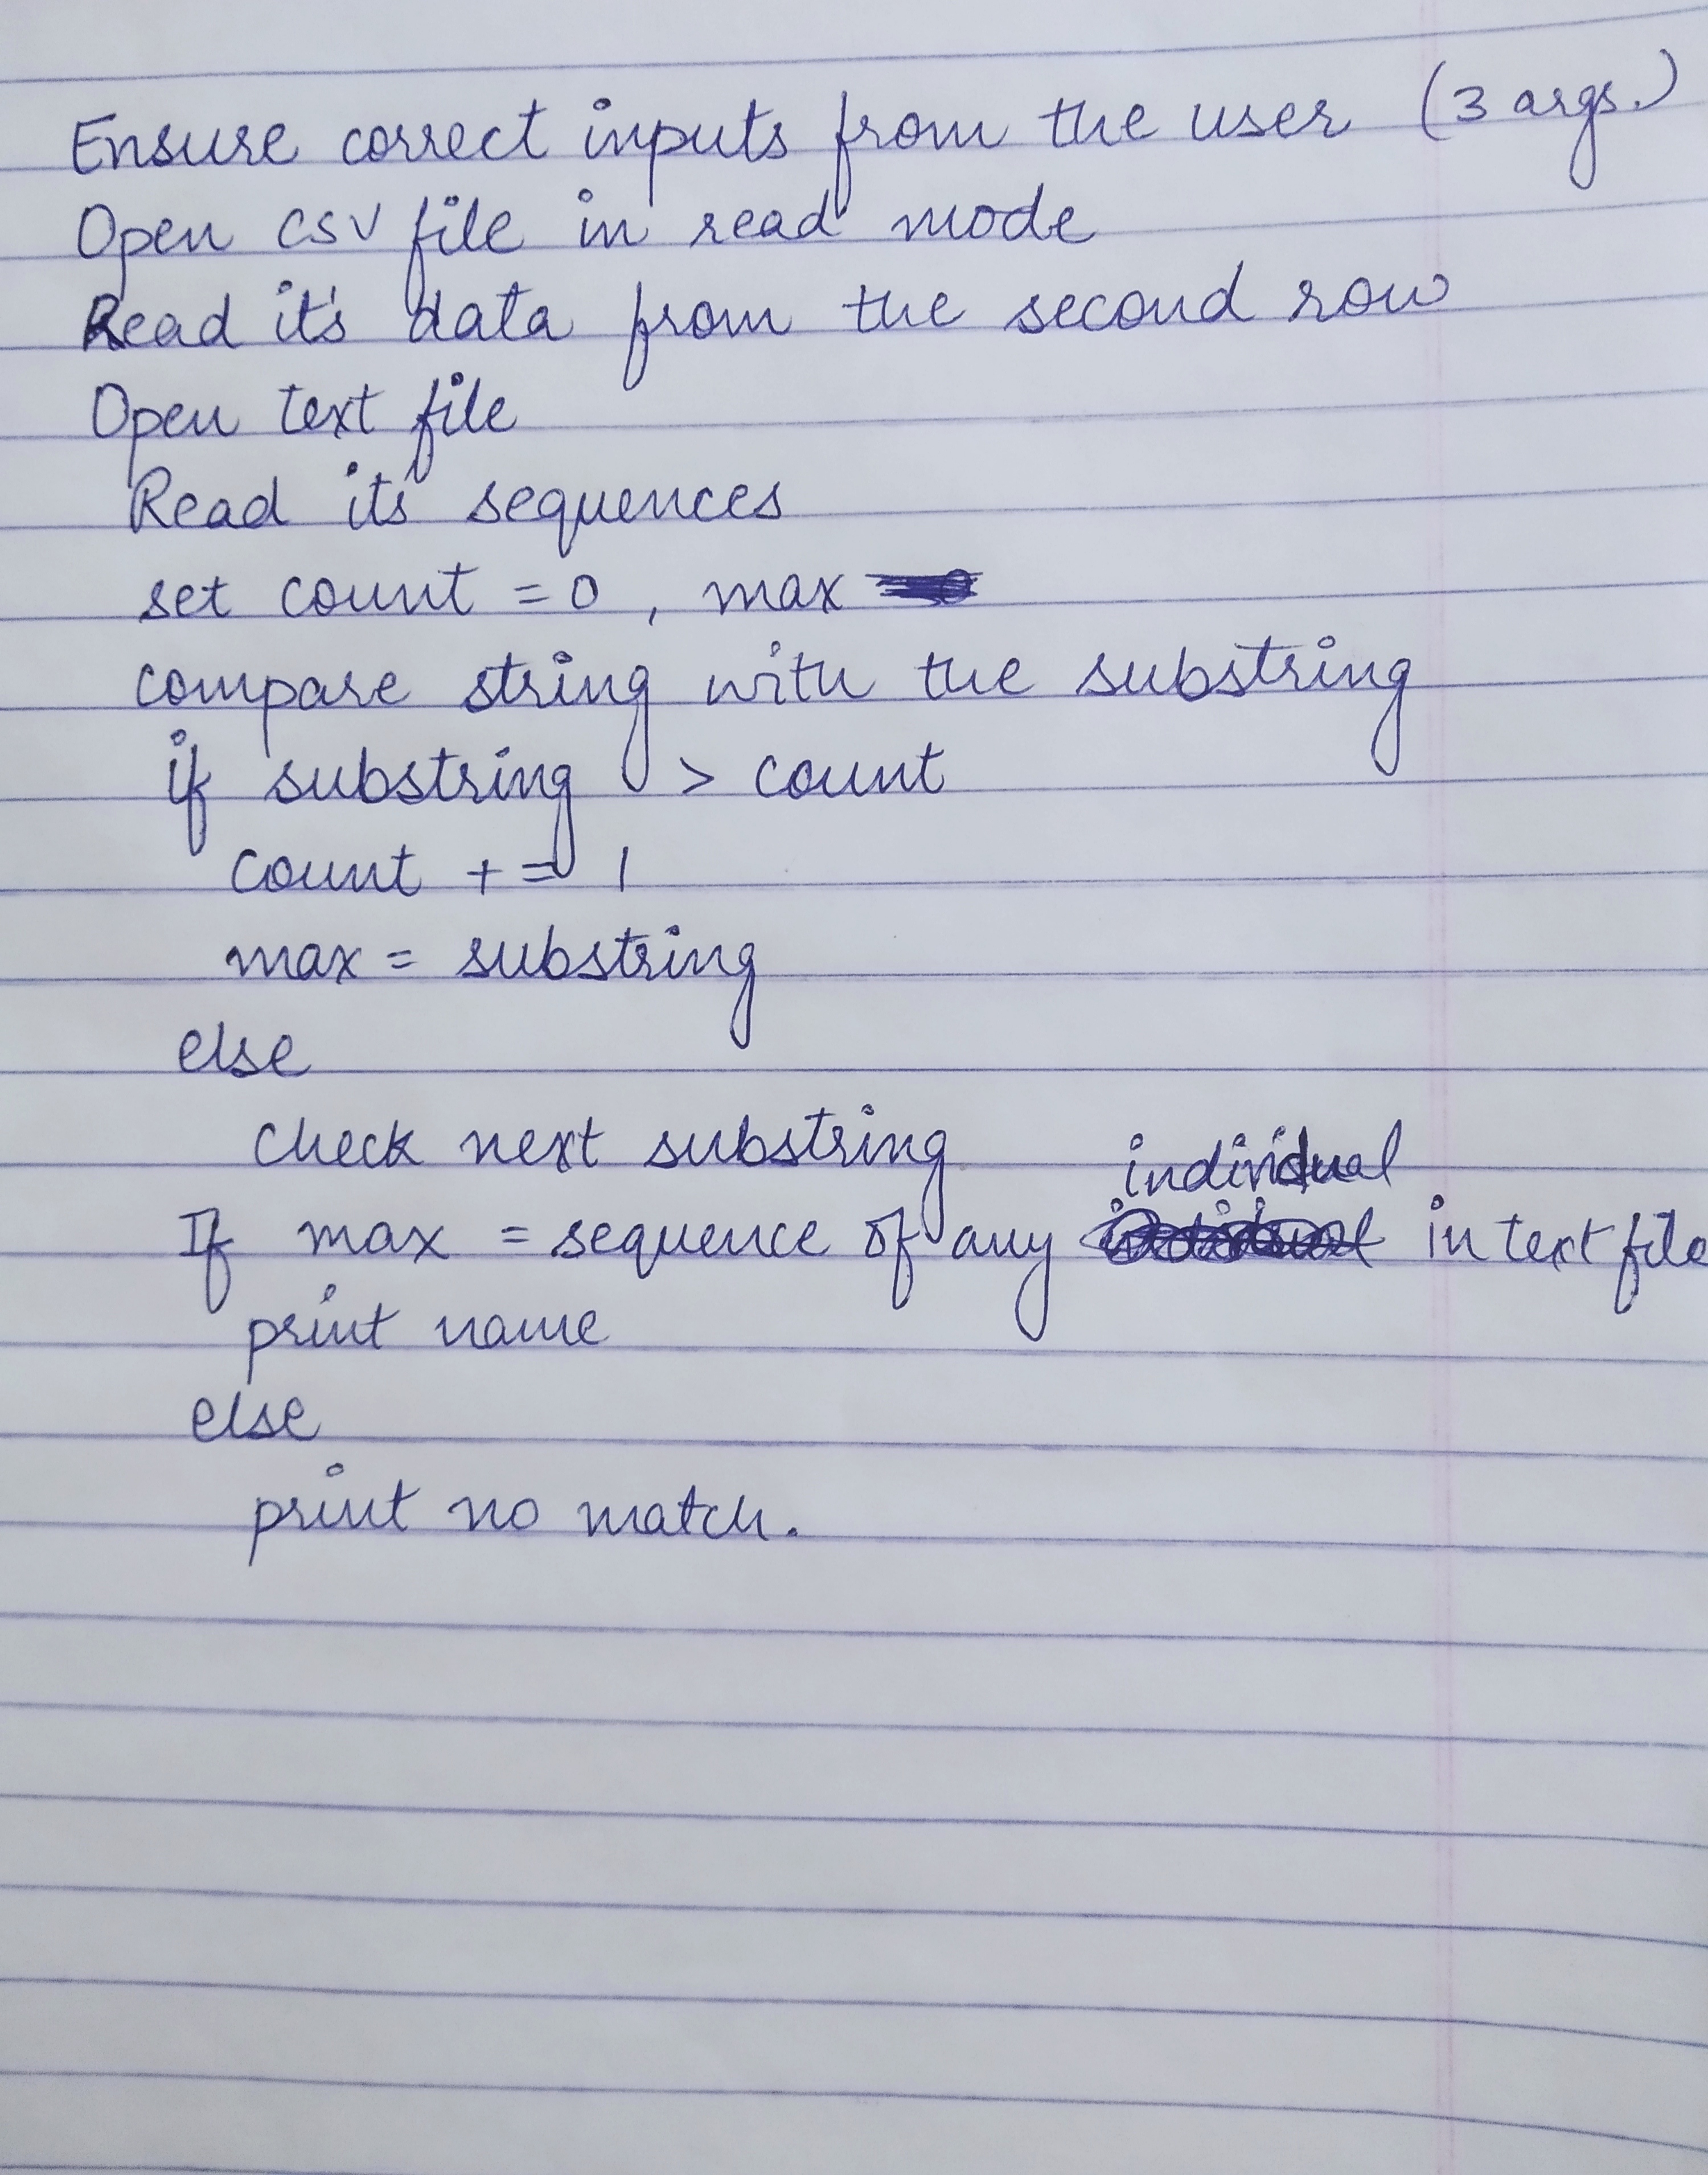 Ensure correct inputs from the user (3 args.)
Open CSV file in read mode
Read it's data from the second row
Open text file
Read its sequences
set count = 0 , max
compare string with the substring
if substring > count
count += 1
max = substring
else
check next substring
individual
If max = sequence of any in text file
print name
else
print no match.